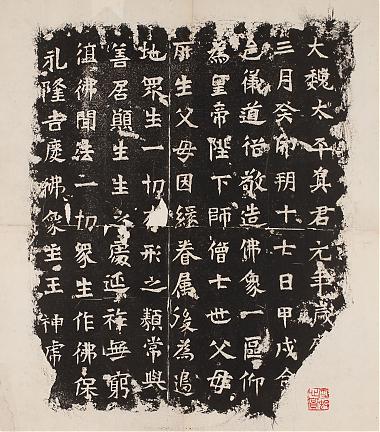 大魏太平真君元年歲
三月癸卯朔十七日甲戌合
邑儀道俗敬造佛象一區仰
為皇帝陛下師僧七世父母
所生父母因緣眷属後為邊
地眾生一切有形之類常與
善居願生生之慶延祚無窮
值佛聞法一切眾生作佛保
礼隆吉慶佛象主王神虎